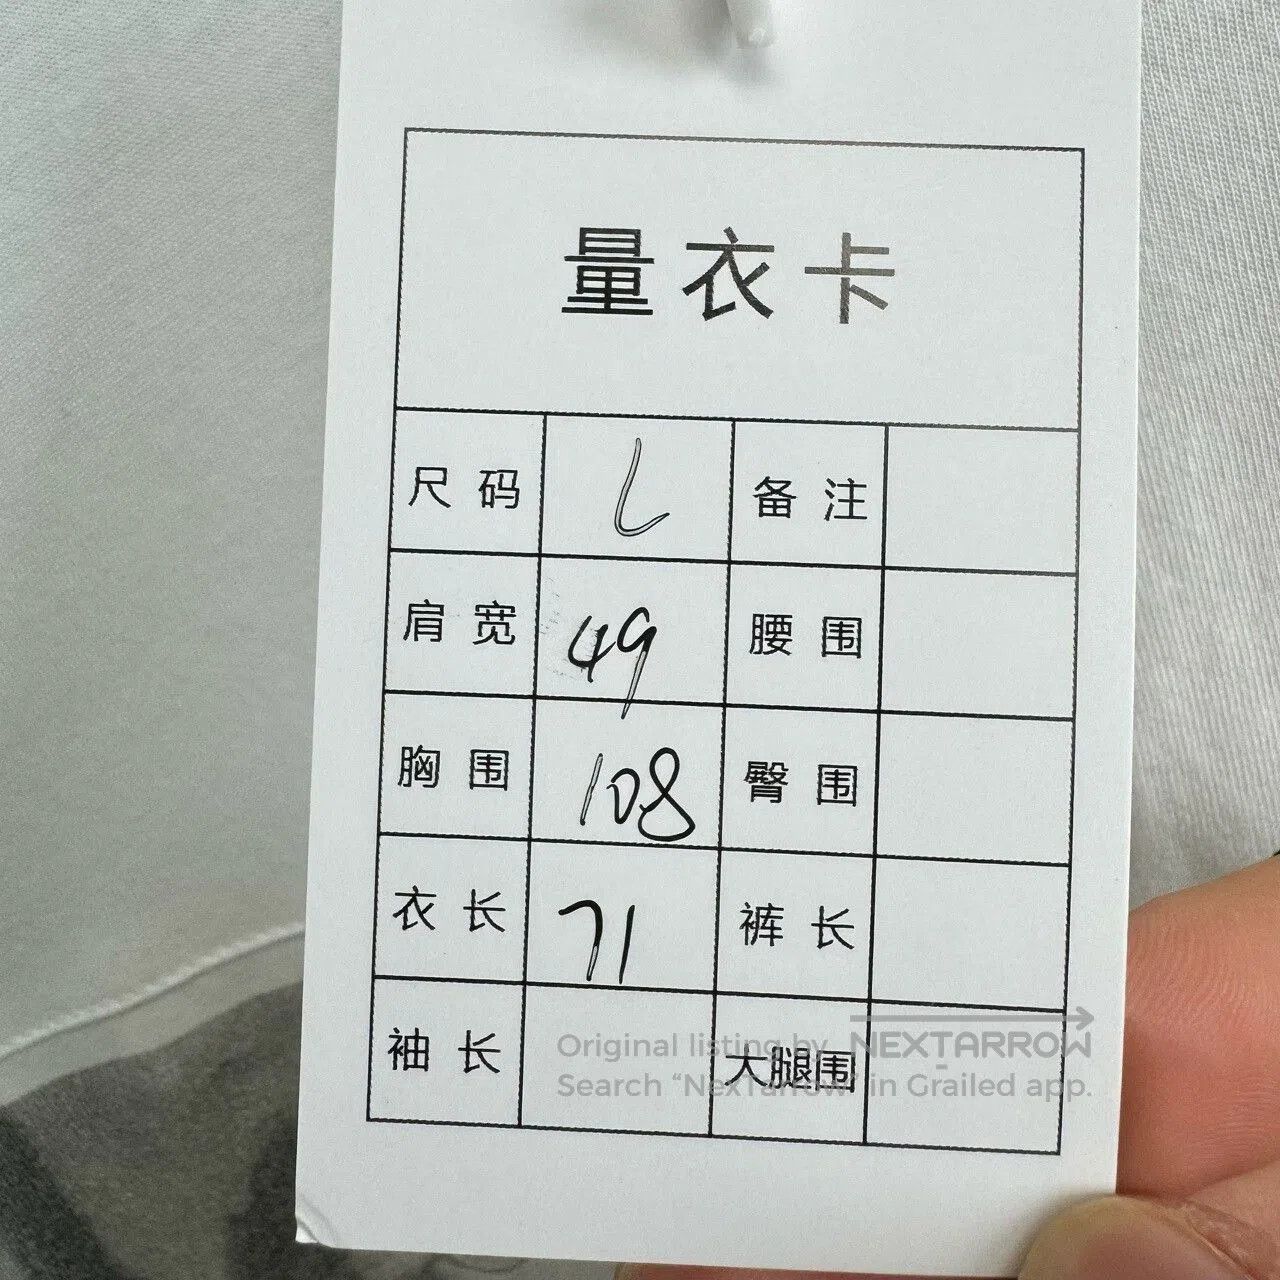 量衣卡
尺码 L 备注
肩宽 49 腰围
胸围 108 臀围
衣长 71 裤长
袖长 大腿围
Original listing by NEXTARROW
Search “NexTarrow” in Grailed app.